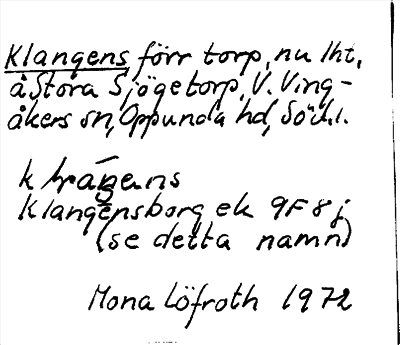 Klangens förr torp, nu lht,
å Stora Sjögetorp, V. Ving-
åkers sn, Oppunda hd, Södl.
Klangensborg ek 9F8j
(se detta namn)
Mona Löfroth 1972